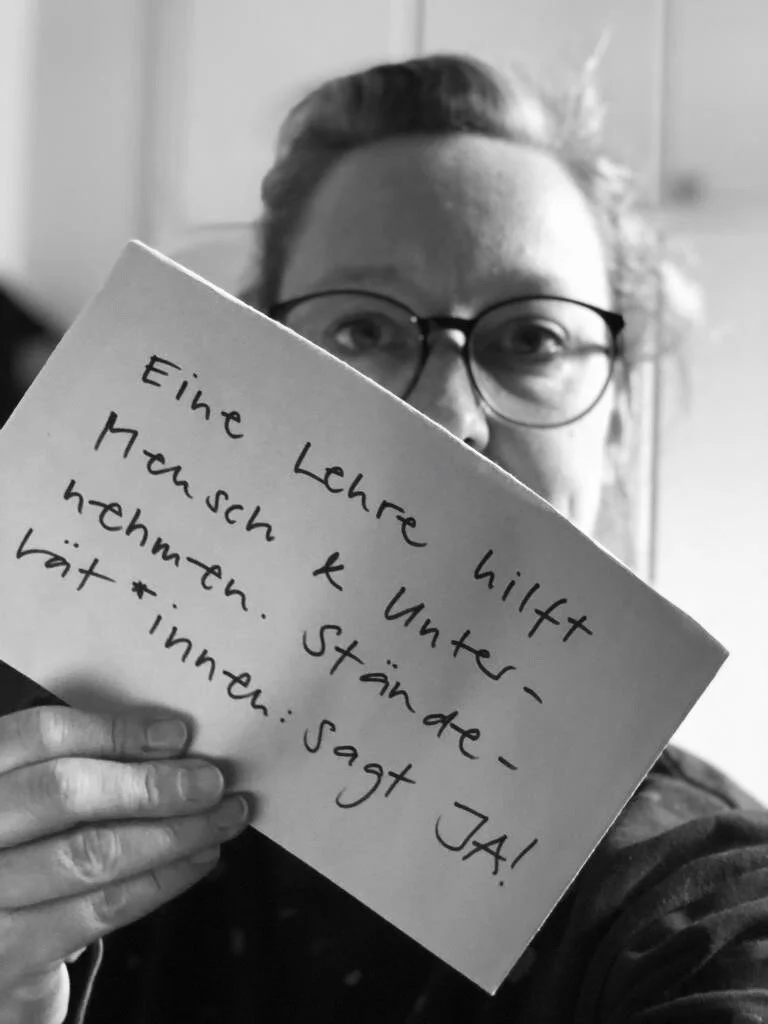 Eine Lehre hilft
Mensch & Unter-
nehmen. Stände-
rät*innen: sagt JA!